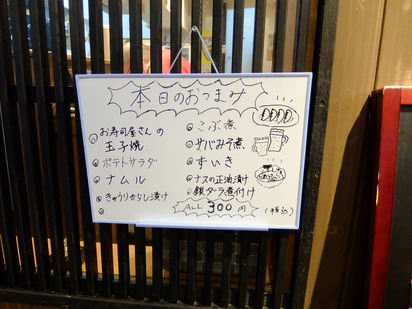 本日のおつまみ
お寿司屋さんの
玉子焼
ポテトサラダ
ナムル
きゅうりからし漬け
こぶ煮
サバみそ煮
ずいき
ナスの正油漬け
銀ダラ煮付け
ALL 300円
(税込)